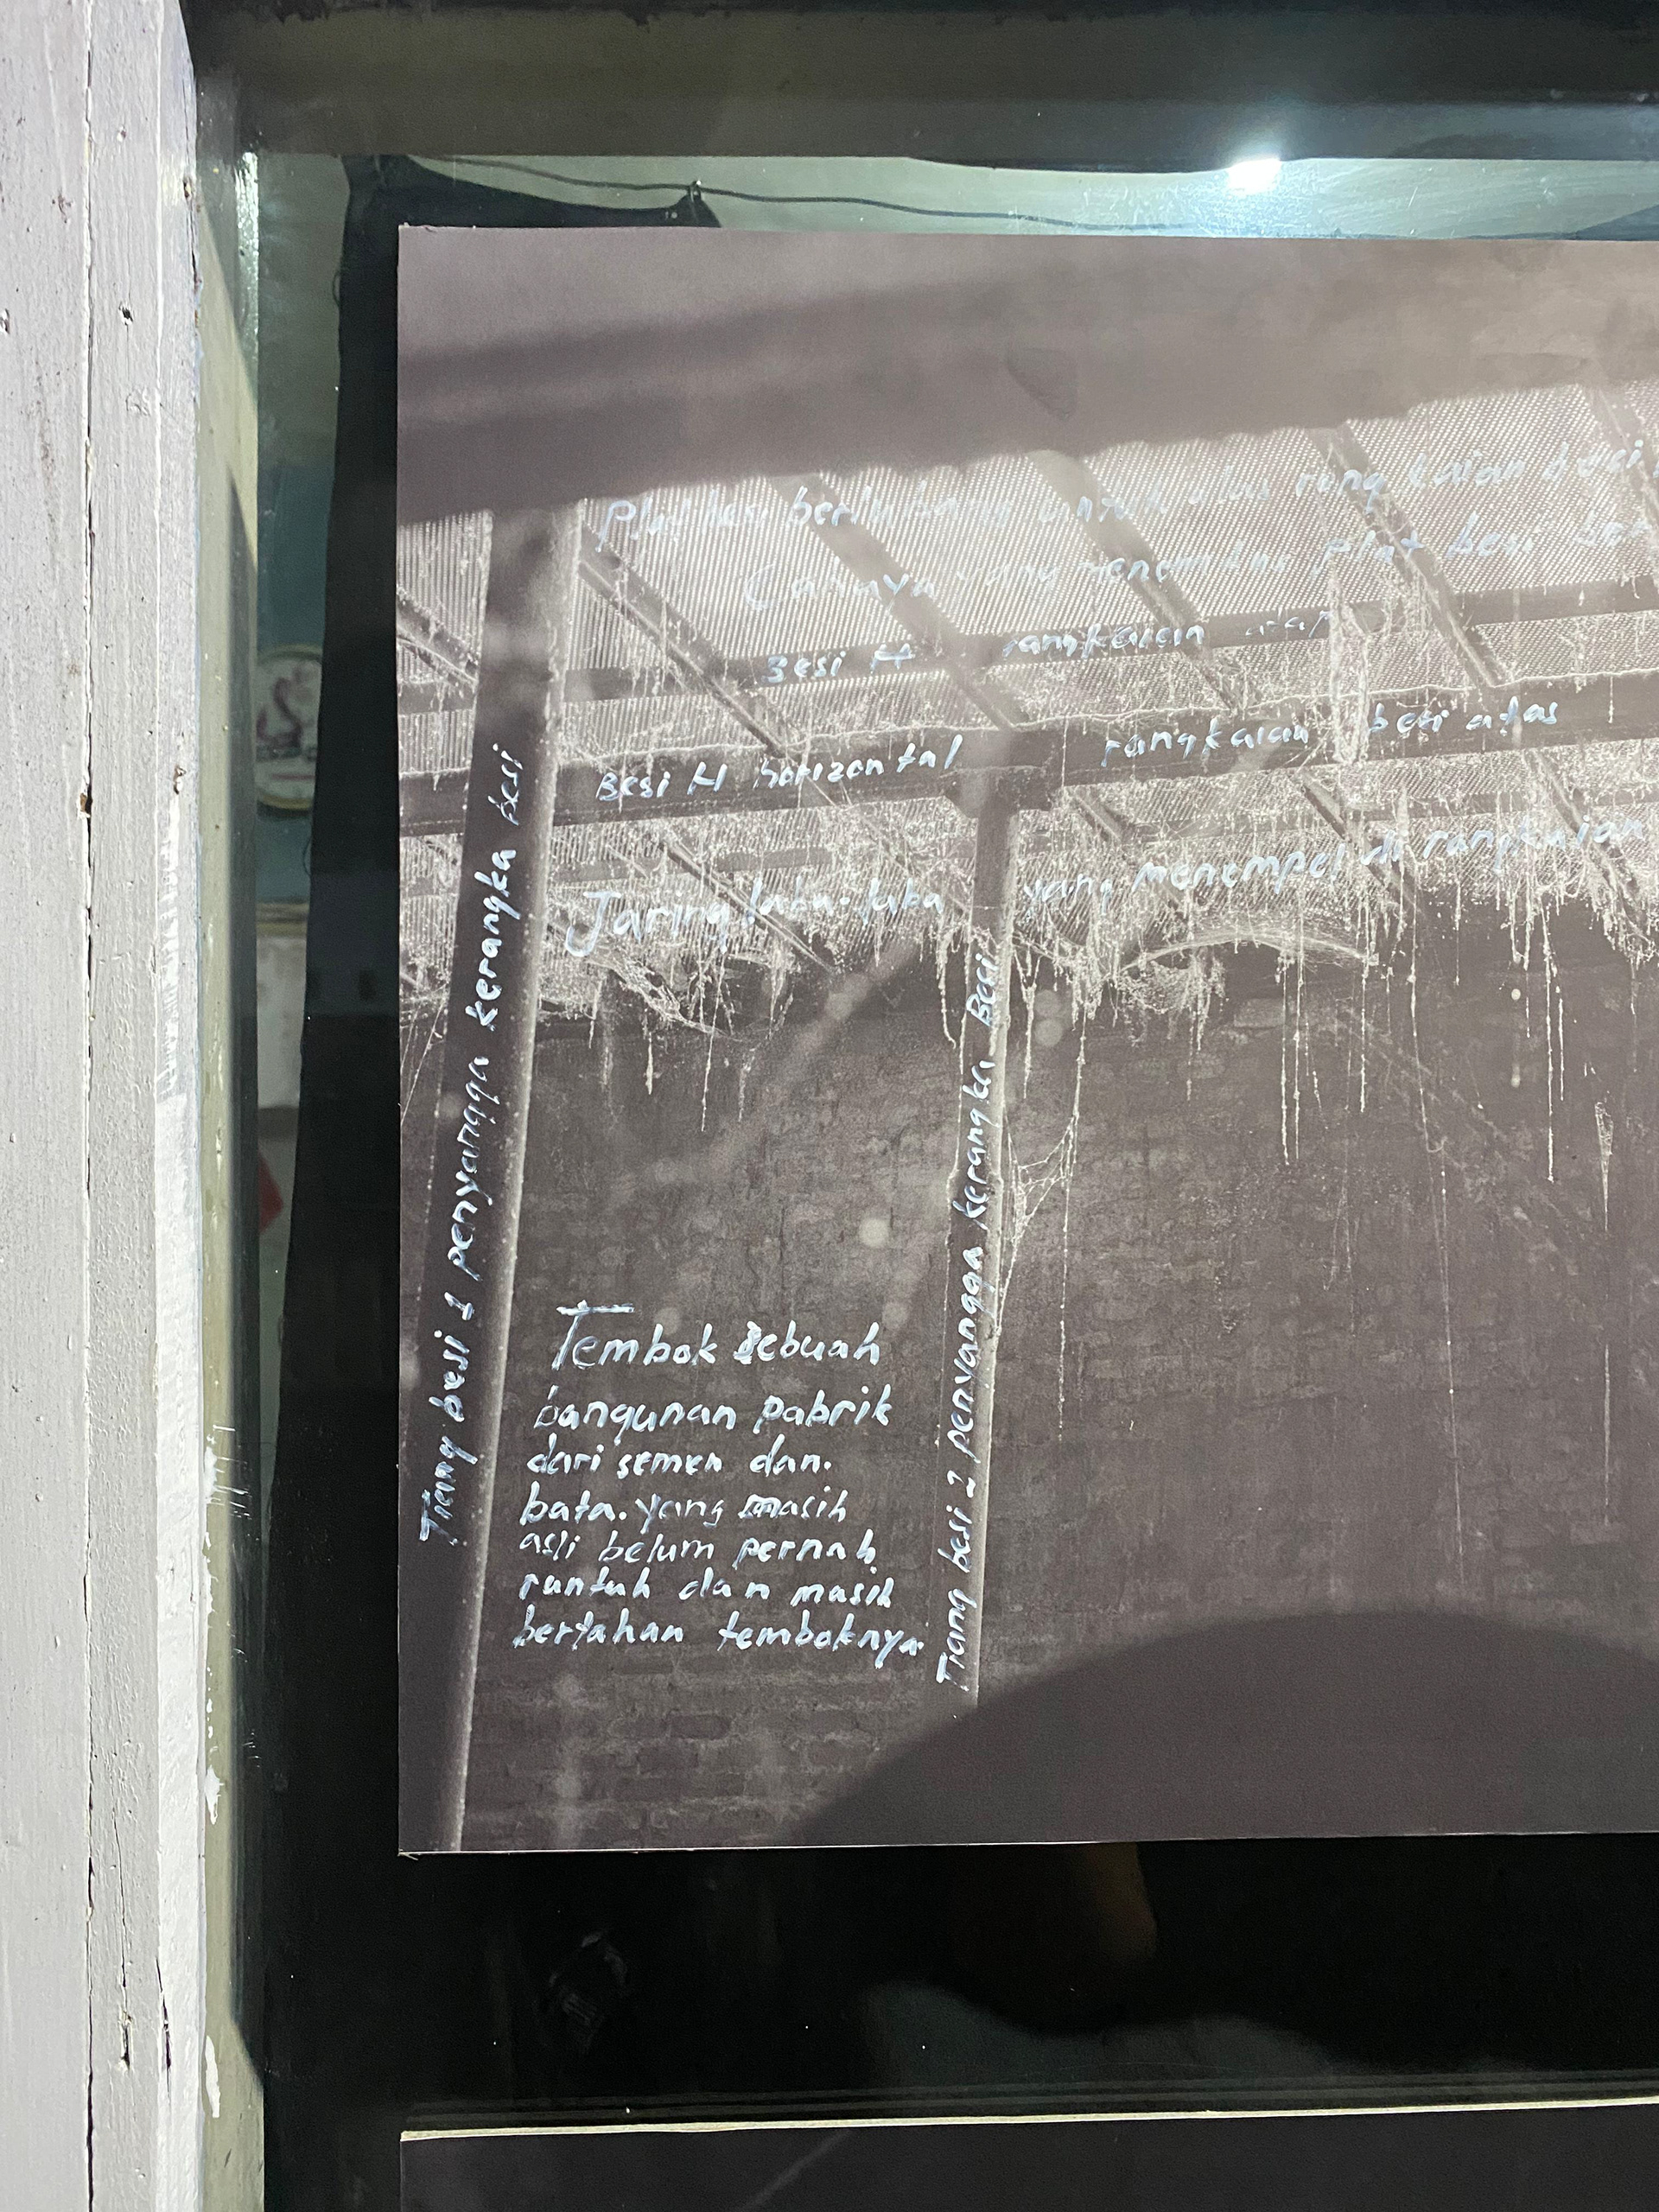 Plat besi berlubang untuk alas rangkaian besi
Cahaya yang menembus plat besi
Besi H rangkaian atap
Besi H horizontal rangkaian besi atas
Jaring laba-laba yang menempel di rangkaian
Tiang besi 1 penyangga kerangka besi
Tiang besi 2 penyangga kerangka Besi
Tembok sebuah
bangunan pabrik
dari semen dan.
bata. yang masih
asli belum pernah
runtuh dan masih
bertahan temboknya.